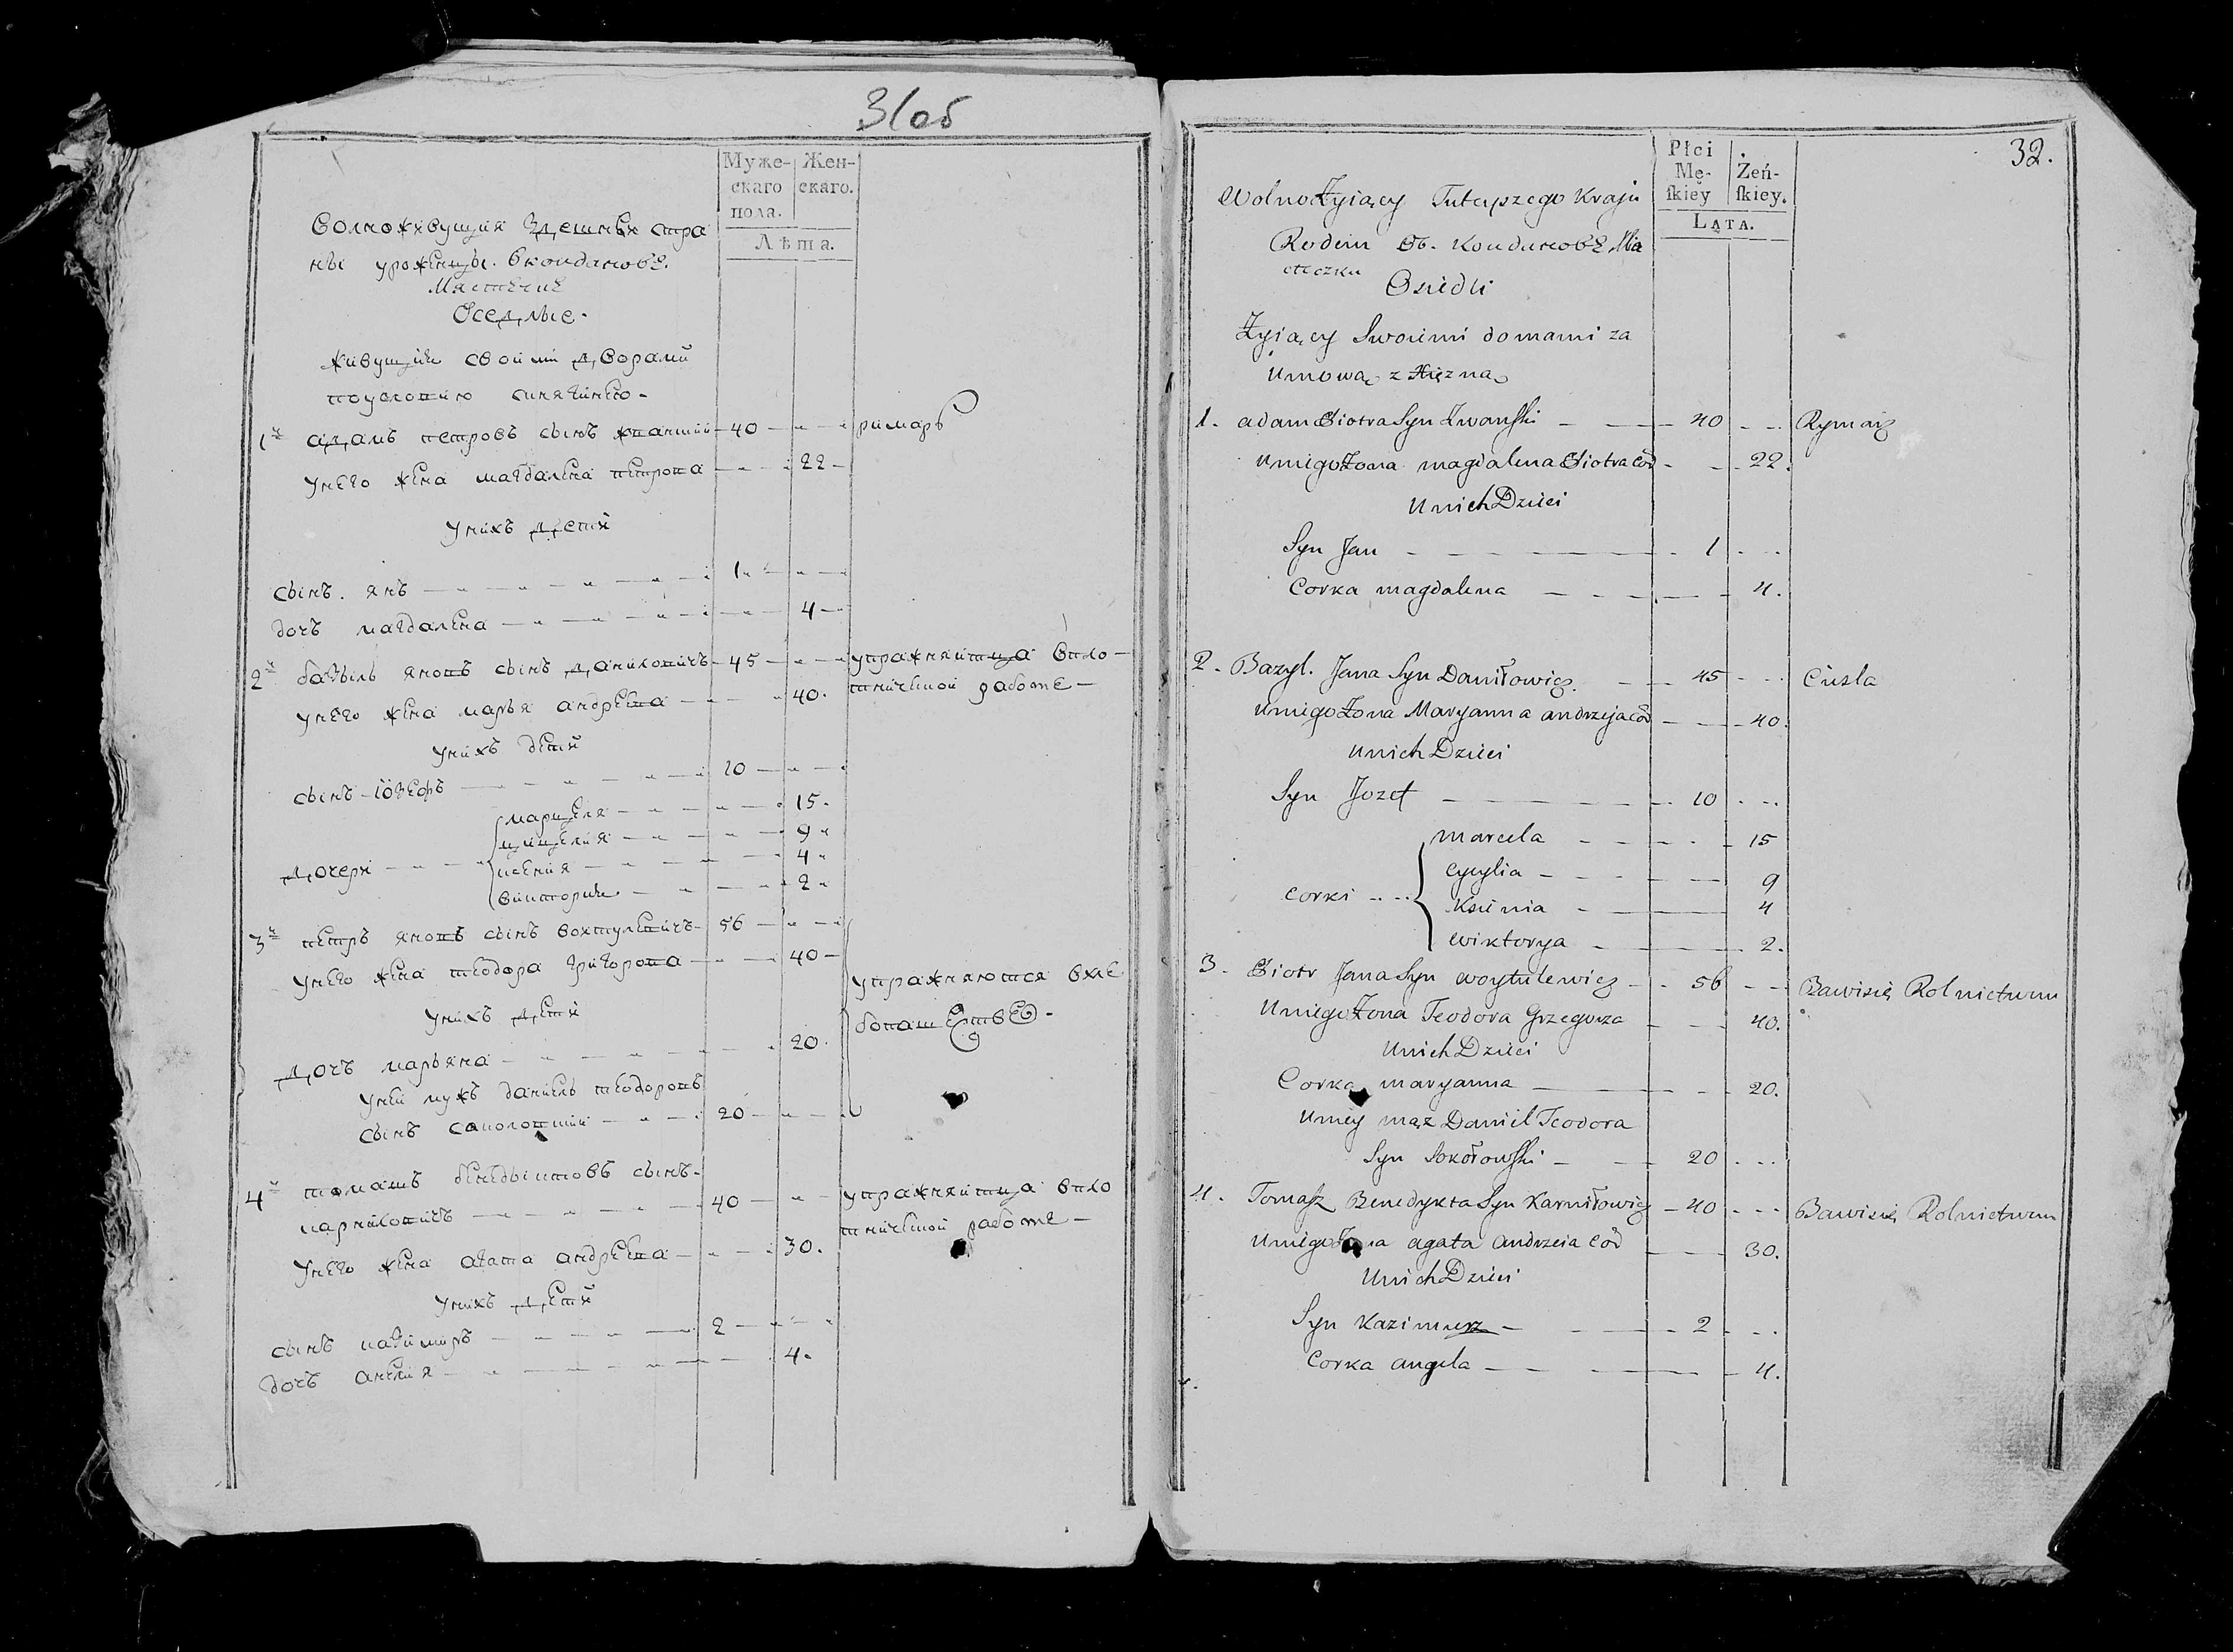 31об
Муже-
скаго
пола.
Жен-
скаго.
Лѣта.
Волноживущия здешныя стра
ны уроженцы. в Койдановѣ.
Мястечке
Оседлые.
живущия своими дворами
поусловию
1й адамъ петровъ сынъ 40 римарь
унего жена магдалена петрова 22
унихъ дети
сынъ. янъ 1
дочь магдалена 4
2й базыль яновъ сынъ даниловичъ 45 упражняитца впло
унего жена марья андреева 40. тничьной работе
унихъ дети
сынъ юзефъ 10
марцеля 15.
цицелия 9
дочери ксения 4
виктория 2
3й петръ яновъ сынъ войтулевичъ 56
унего жена теодора григорова 40
упражняются вхле
унихъ дети
бопашестве
дочь марьяна 20.
уней мужъ данiель теодоровъ
сынъ соколовский 20
4й томашъ бенедыктовъ сынъ
карниловичъ 40 упражняитца впло
тничьной работе
унего жена агата андреева 30.
унихъ дети
сынъ казимиръ 2
дочь анеля 4.
32.
Płci
Mę-
ſkiey
Żeń-
ſkiey.
Lata.
Wolno Żyiący Tuteyszego Kraju
Rodem Ob. Koudanowe Mia
steczku
Osiedli
Żyiący Swoiemi domami za
Umową z
1. adam Piotra Syn Iwanski 40 Rymarz
Uniego Żona magdalena Piotra Cor 22.
Unich Dzieci
Syn Jan 1
Corka magdalena 4.
2. Bazyl. Jana Syn Daniłowicz. 45 Ciesla
Uniego Żona Maryanna andrzeja Cor 40.
Unich Dzieci
Syn Jozef 10
marcela 15
Cycylia 9
corki Ksienia 4
Wiktorya 2.
3. Piotr Jana Syn Woytulewicz 56 Bawisię Rolnictwem
Uniego Żona Teodora Grzegorza 40.
Unich Dzieci
Corka maryanna 20.
Uniey mąz Daniel Teodora
Syn Sokołowski 20
4. Tomasz Benedykta Syn Karniłowicz 40 Bawisię Rolnictwem
Uniego Żona agata Andrzeia Cor 30.
Unich Dzieci
Syn Kazimierz 2
Corka angela 4.